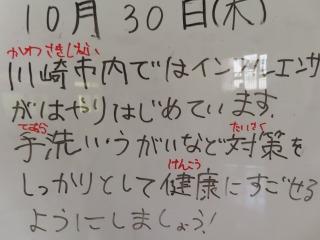 10月30日(木)
かわさきしない
川崎市内ではインフルエンザ
がはやりはじめています.
てあら
手洗いうがいなど対策を
たいさく
しっかりとして健康にすごせる
けんこう
ようにしましょう!